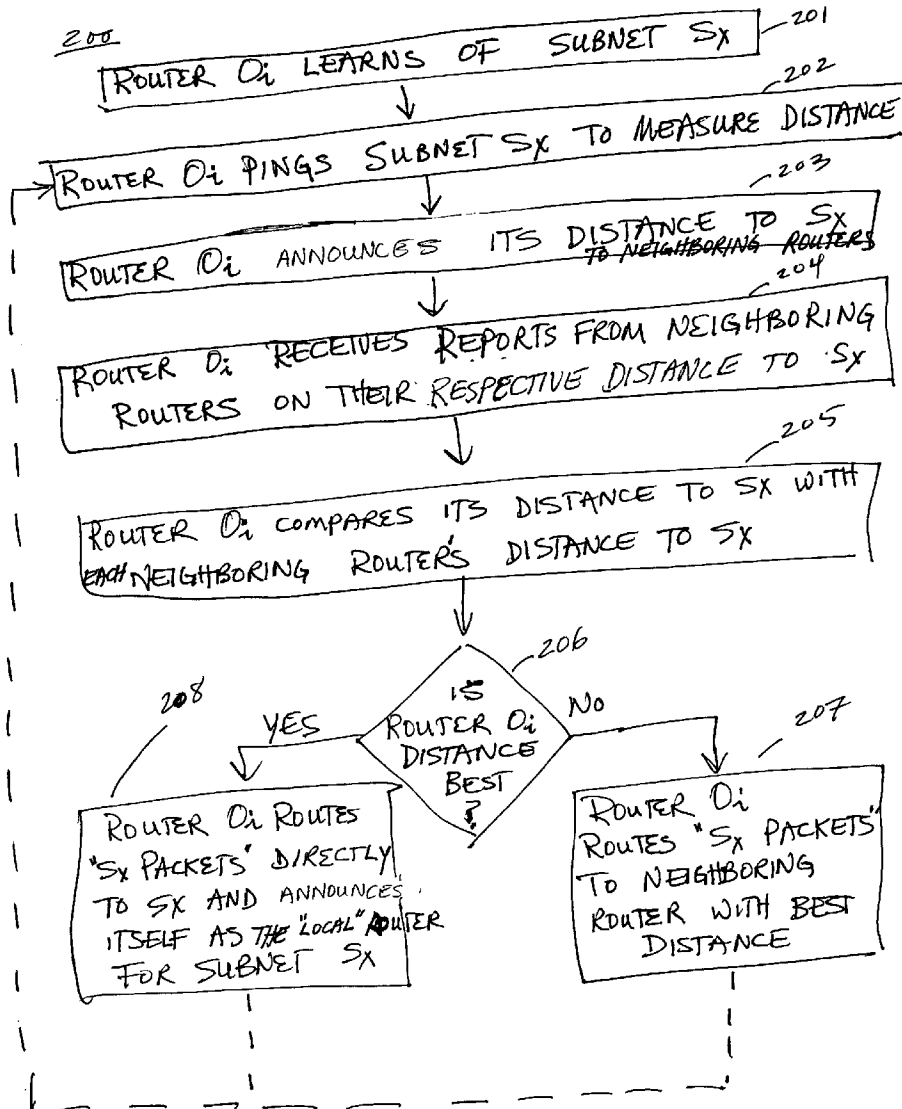 200
201
ROUTER Oi LEARNS OF SUBNET SX
202
ROUTER Oi PINGS SUBNET SX TO MEASURE DISTANCE
203
ROUTER Oi ANNOUNCES ITS DISTANCE TO SX
TO NEIGHBORING ROUTERS
204
ROUTER Oi RECEIVES REPORTS FROM NEIGHBORING
ROUTERS ON THEIR RESPECTIVE DISTANCE TO SX
205
ROUTER Oi COMPARES ITS DISTANCE TO SX WITH
EACH NEIGHBORING ROUTER'S DISTANCE TO SX
206
IS
ROUTER Oi
DISTANCE
BEST
?
YES
NO
208
ROUTER Oi ROUTES
"SX PACKETS" DIRECTLY
TO SX AND ANNOUNCES
ITSELF AS THE "LOCAL" ROUTER
FOR SUBNET SX
207
ROUTER Oi
ROUTES "SX PACKETS"
TO NEIGHBORING
ROUTER WITH BEST
DISTANCE